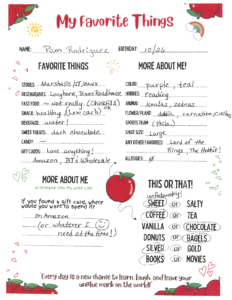 My Favorite Things
NAME: Pam Rodriguez BIRTHDAY: 10/26
FAVORITE THINGS
STORES: Marshalls/TJ Maxx
RESTAURANTS: Longhorn, Texas Roadhouse
FAST FOOD: Not really (Chickfila) ok
SNACK: healthy (low carb)
BEVERAGE: water!
SWEET TREATS: dark chocolate
CANDY: —
GIFT CARDS: Love anything!
Amazon, BJ's Wholesale
MORE ABOUT ME!
COLOR: purple, teal
HOBBIES: reading
ANIMAL: koalas, zebras
FLOWER/PLANT: carnation
SPORTS TEAM:
SHIRT SIZE: Large
ANY OTHER FAVORITES: Lord of the
Rings, The Hobbit!
ALLERGIES:
MORE ABOUT ME
If you found a gift card, where
would you want to spend it?
on Amazon
(or whatever I
need at the time!)
THIS OR THAT!
unfortunately!
SWEET or SALTY
COFFEE or TEA
VANILLA or CHOCOLATE
DONUTS or BAGELS
SILVER or GOLD
BOOKS or MOVIES
Every day is a new chance to learn, laugh, and leave your
unique mark on the world!